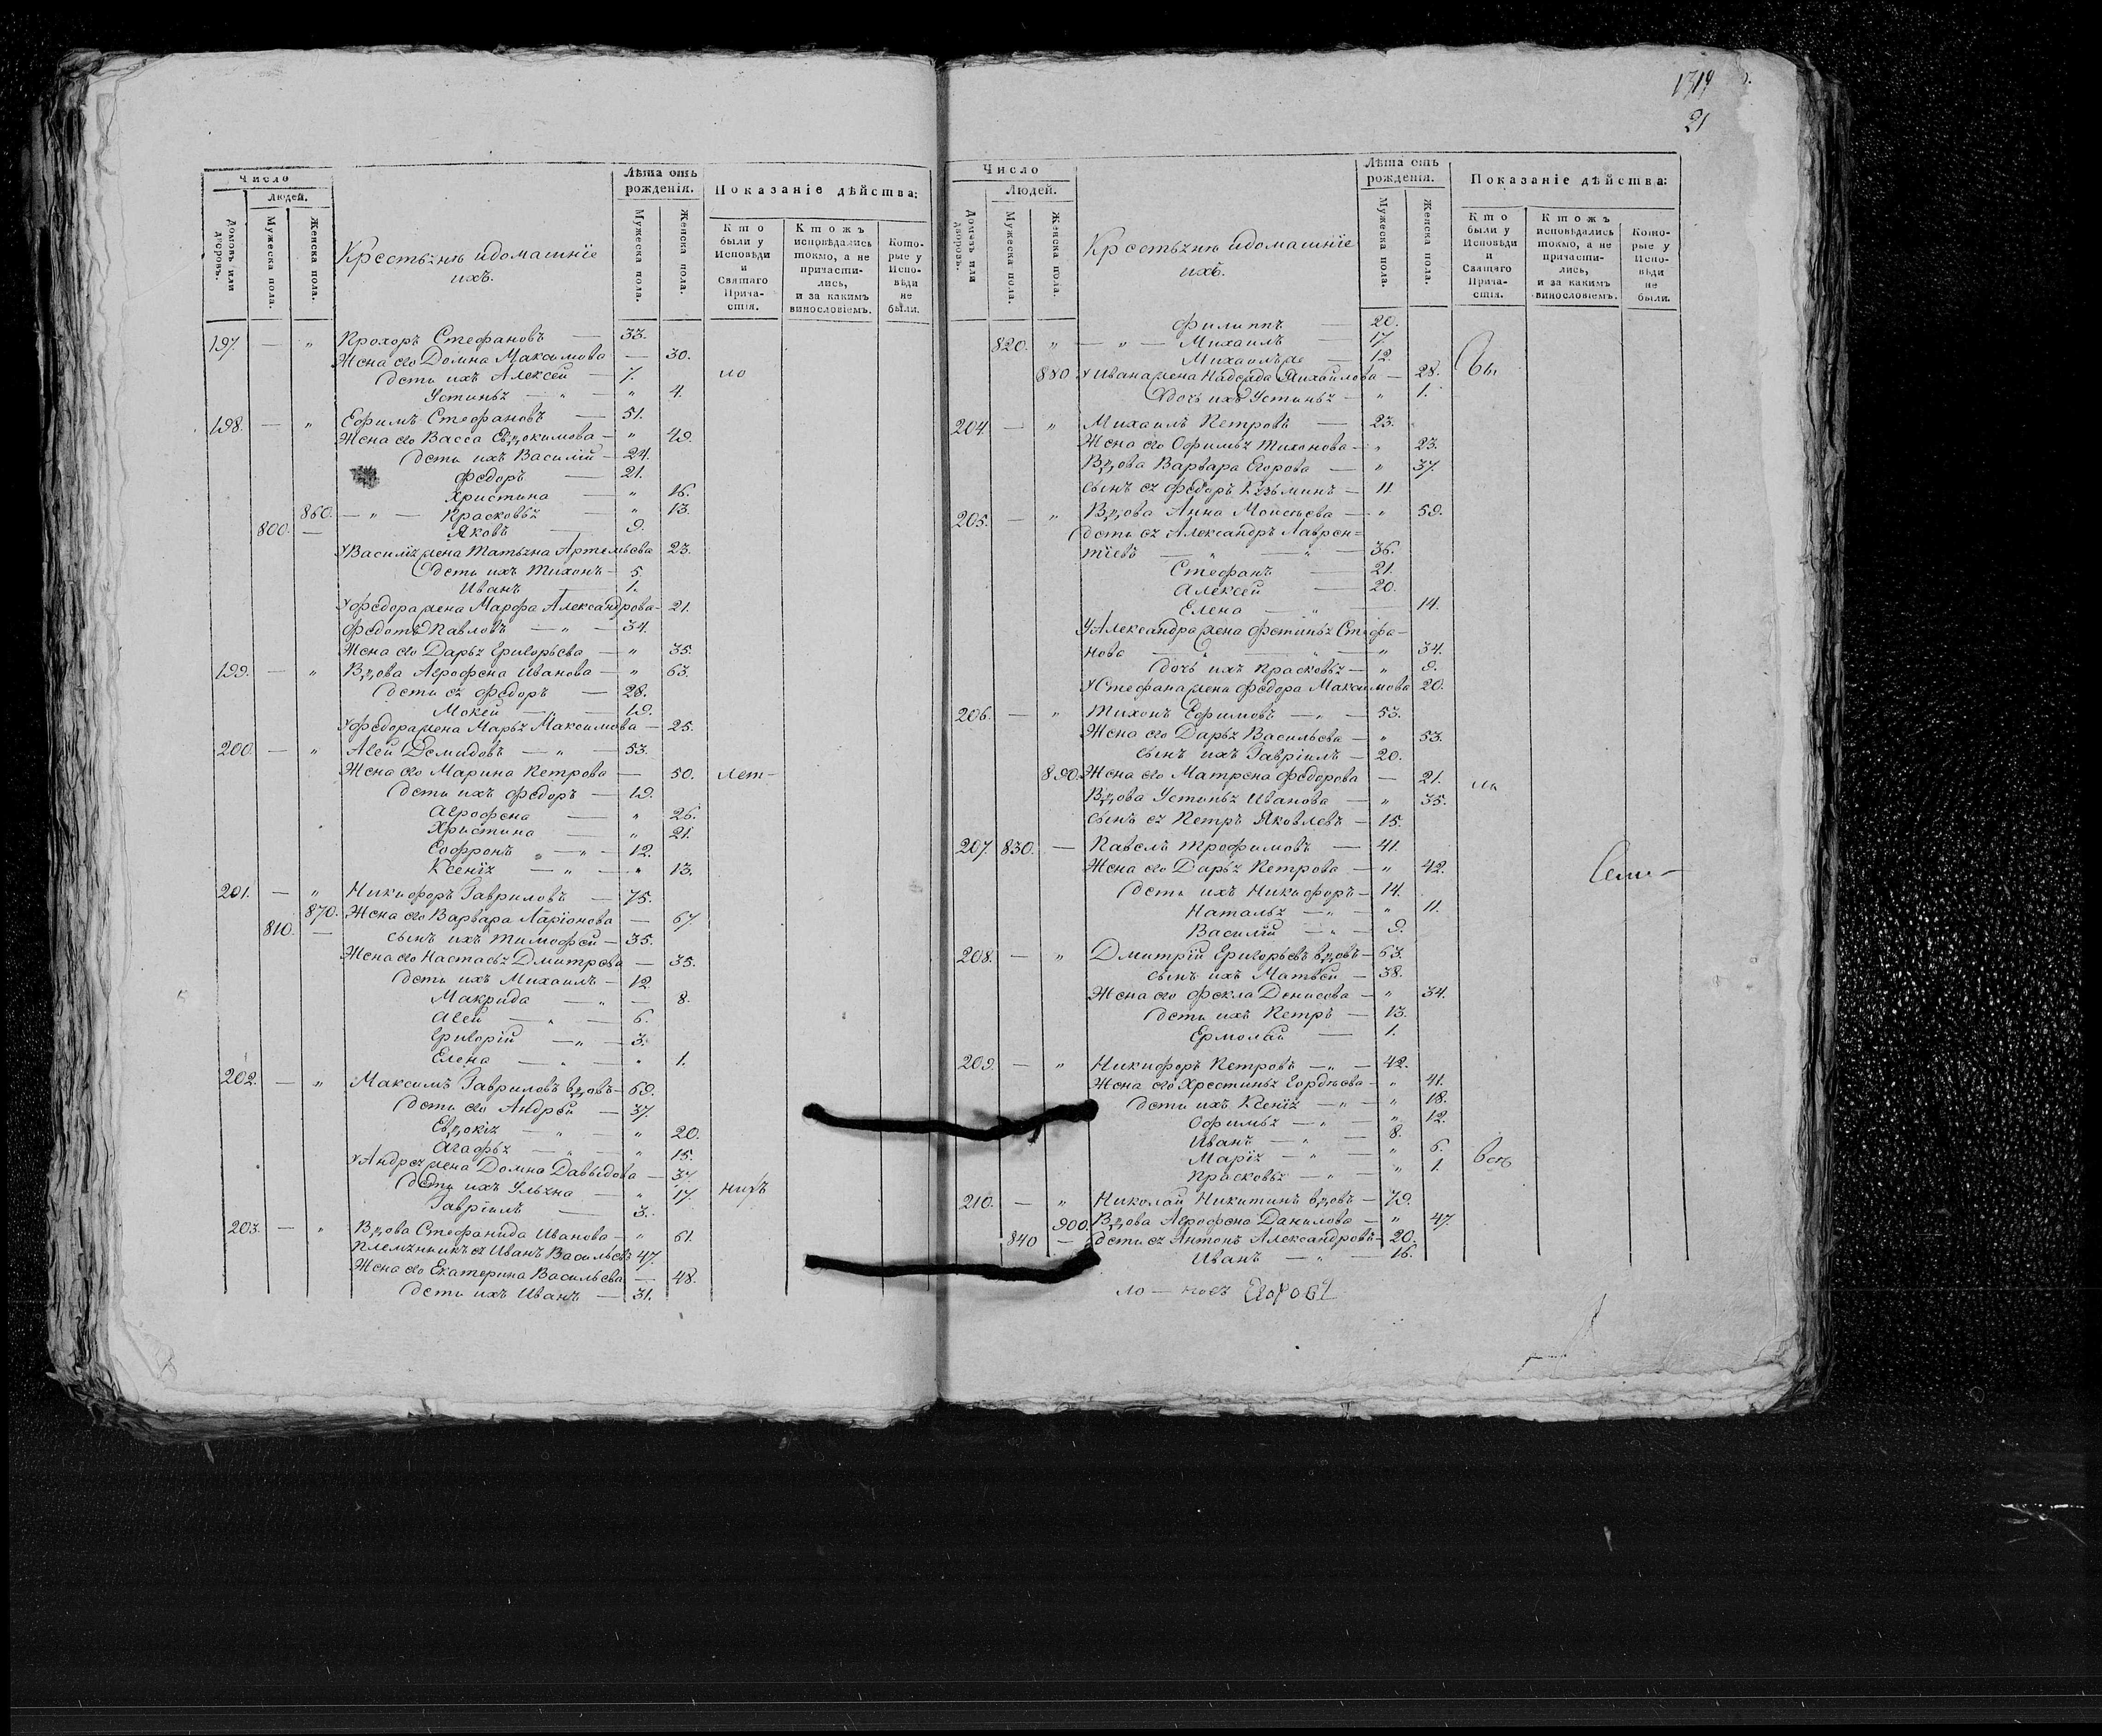 Число
Людей.
Домовъ или дворовъ.
Мужеска пола.
Женска пола.
Крестьяне и домашнїе
ихъ.
Лѣта отъ
рожденія.
Мужеска пола.
Женска пола.
Показаніе дѣйства:
Кто были у Исповѣди и Святаго Причастія.
Ктожъ исповѣдались токмо, а не причастились, и за какимъ винословіемъ.
Которые у Исповѣди не были.
197. — „ Прохоръ Стефановъ — 33.
Жена его Домна Максимова — 30.
Дети ихъ Алексей — 7. ло
Устинья — „ — „ 4.
198. — „ Ефимъ Стефановъ — 51.
Жена его Васса Евдокимова — „ 49.
Дети ихъ Василій — 24.
Федоръ — 21.
Христина — „ 16.
860. — „ — Прасковья — „ 13.
800. — Яковъ — 9.
У Василья жена Татьяна Артемьева 23.
Дети ихъ Тихонъ — 5.
Иванъ 1.
У Федора жена Марфа Александрова — 21.
Федотъ Павловъ — „ — 34.
Жена его Дарья Григорьева — „ 35.
199. — „ Вдова Агрофена Иванова — „ 63.
Дети ея Федоръ — 28.
Мокей — „ — 19.
У Федора жена Марья Максимова — 25.
200. — „ Авей Демидовъ — „ — 53.
Жена его Марина Петрова — 50. лет-
Дети ихъ Федоръ — 19.
Агрофена — „ 26.
Христина — „ 21.
Софронъ — „ — 12.
Ксенїя — „ — „ 13.
201. — „ Никифоръ Гавриловъ — 75.
870. Жена его Варвара Ларїонова — 67.
810. — сынъ ихъ Тимофей — 35.
Жена его Настасья Дмитрева — 35.
Дети ихъ Михаилъ — 12.
Макрида — „ — 8.
Авей — „ — 6.
Григорїй — „ — 3.
Елена — „ — „ 1.
202. — „ Максимъ Гавриловъ вдовъ — 69.
Дети его Андрей — 37.
Евдокїя — „ — „ 20.
Агафья — „ — „ 15.
У Андрея жена Домна Давыдова — 37.
Дети ихъ Ульяна — „ 17. нихъ
Гаврїилъ — 3.
203. — „ Вдова Стефанида Иванова — „ 61.
Племянникъ ея Иванъ Васильевъ 47.
Жена его Екатерина Васильева — 48.
Дети ихъ Иванъ — 31.
1319
21
Число
Людей.
Домовъ или дворовъ.
Мужеска пола.
Женска пола.
Крестьяне и домашнїе
ихъ.
Лѣта отъ
рожденія.
Мужеска пола.
Женска пола.
Показаніе дѣйства:
Кто были у Исповѣди и Святаго Причастія.
Ктожъ исповѣдались токмо, а не причастились, и за какимъ винословіемъ.
Которые у Исповѣди не были.
Филиппъ — 20.
820. „ — „ — Михаилъ — 17.
Михаилъ же — 12.
880 У Ивана жена Надежда Михайлова — 28. бы
Дочь ихъ Устинья — „ 1.
204. — „ Михаилъ Петровъ — 23.
Жена его Офимья Тихонова — „ 23.
Вдова Варвара Егорова — „ 37.
сынъ ея Федоръ Кузьминъ — 11.
205. — „ Вдова Анна Моисеева — „ 59.
Дети ея Александръ Лаврен-
тїевъ — „ — „ — 36.
Стефанъ — 21.
Алексей — 20.
Елена — „ — 14.
У Александра жена Фетинья Стефа-
нова — „ — „ 34.
Дочь ихъ Прасковья — „ 9.
У Стефана жена Федора Максимова 20.
206. — „ Тихонъ Ефимовъ — „ — 53.
Жена его Дарья Васильева — „ 53.
сынъ ихъ Гаврїилъ — 20.
890. Жена его Матрена Федорова — 21.
Вдова Устинья Иванова — „ 35.
сынъ ея Петръ Яковлевъ — 15.
207. 830. — Павелъ Трофимовъ — 41.
Жена его Дарья Петрова — „ 42.
Дети ихъ Никифоръ — 14.
Наталья — „ — „ 11.
Василїй — „ — 9.
208. — „ Дмитрїй Григорьевъ вдовъ — 63.
сынъ ихъ Матвей — 38.
Жена его Фекла Денисова — „ 34.
Дети ихъ Петръ — 13.
Ермолай — 1.
209. — „ Никифоръ Петровъ — „ — 42.
Жена его Хрестинья Гордеева — „ 41.
Дети ихъ Ксенїя — „ — „ 18.
Офимья — „ — „ 12.
Иванъ — „ — 8.
Марїя — „ — „ 6. все
Прасковья — „ — „ 1.
210. — „ Николай Никитинъ вдовъ — 79.
900. Вдова Агрофена Данилова — „ 47.
840 — Дети ея Антонъ Александровъ — 20.
Иванъ — „ — 16.